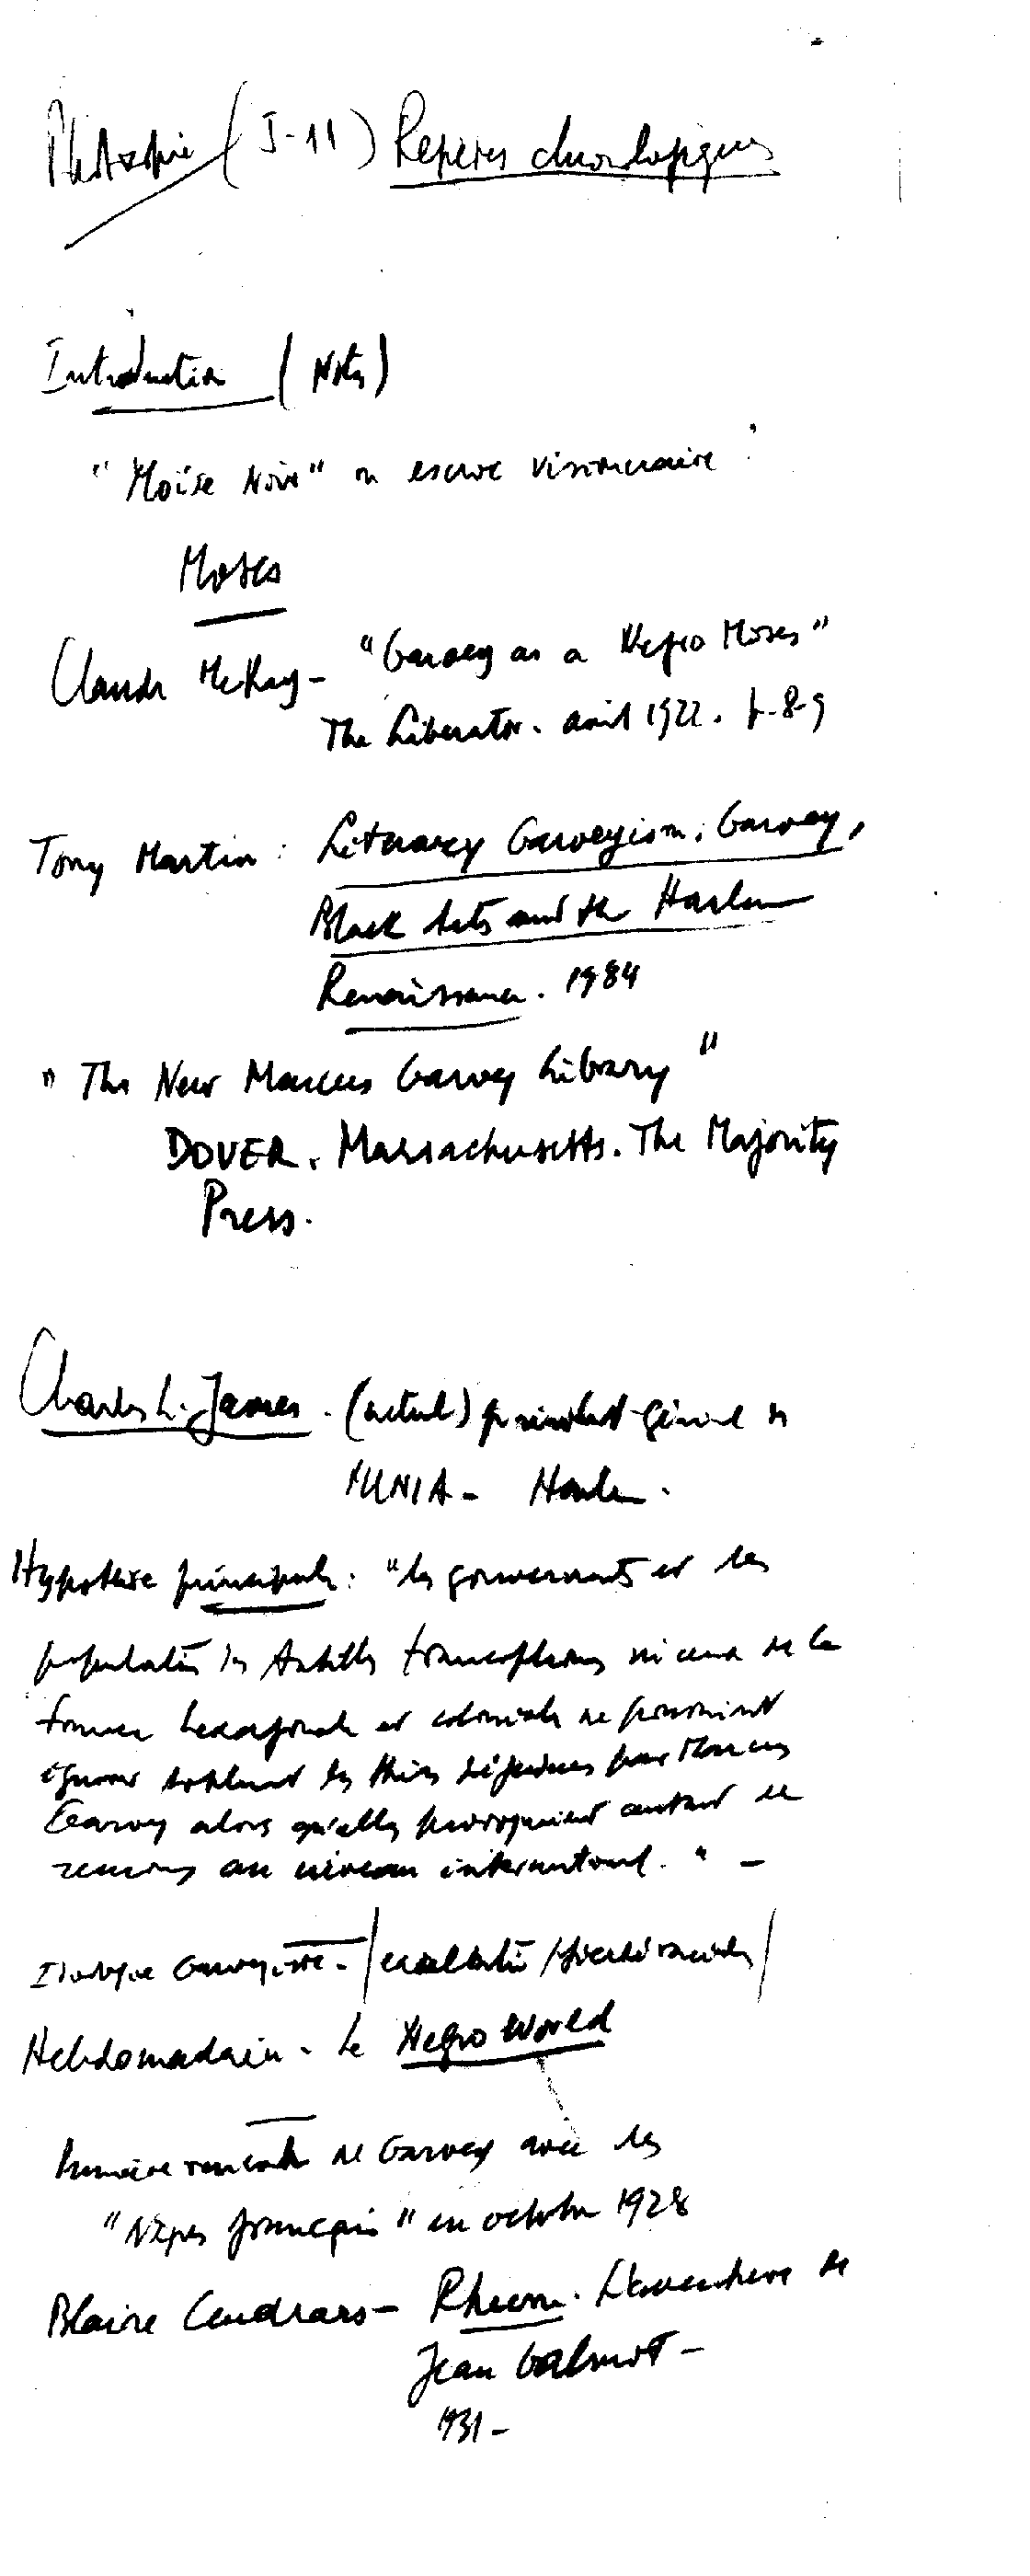 Photocopie (I-11) Repères chronologiques
Introduction (Notes)
"Moïse Noir" ou escroc visionnaire ?
Moses
Claude McKay - "Garvey as a Negro Moses"
The Liberator. avril 1922. p. 8-9
Tony Martin : Literary Garveyism. Garvey,
Black Arts and the Harlem
Renaissance. 1984
"The New Marcus Garvey Library"
DOVER. Massachusetts. The Majority
Press.
Charles L. James. (actuel) président-général de
l'UNIA - Harlem.
Hypothèse principale : "les gouvernants et les
populations des Antilles francophones ni ceux de la
France hexagonale et coloniale ne pouvaient
ignorer totalement les thèses défendues par Marcus
Garvey alors qu'elles provoquaient autant de
remous au niveau international." -
Idéologie Garveyiste. - / exaltation / fierté raciale /
Hebdomadaire - le Negro World
Première rencontre de Garvey avec les
"Nègres français" en octobre 1928
Blaise Cendrars - Rhum. L'Aventure de
Jean Galmot -
1931 -